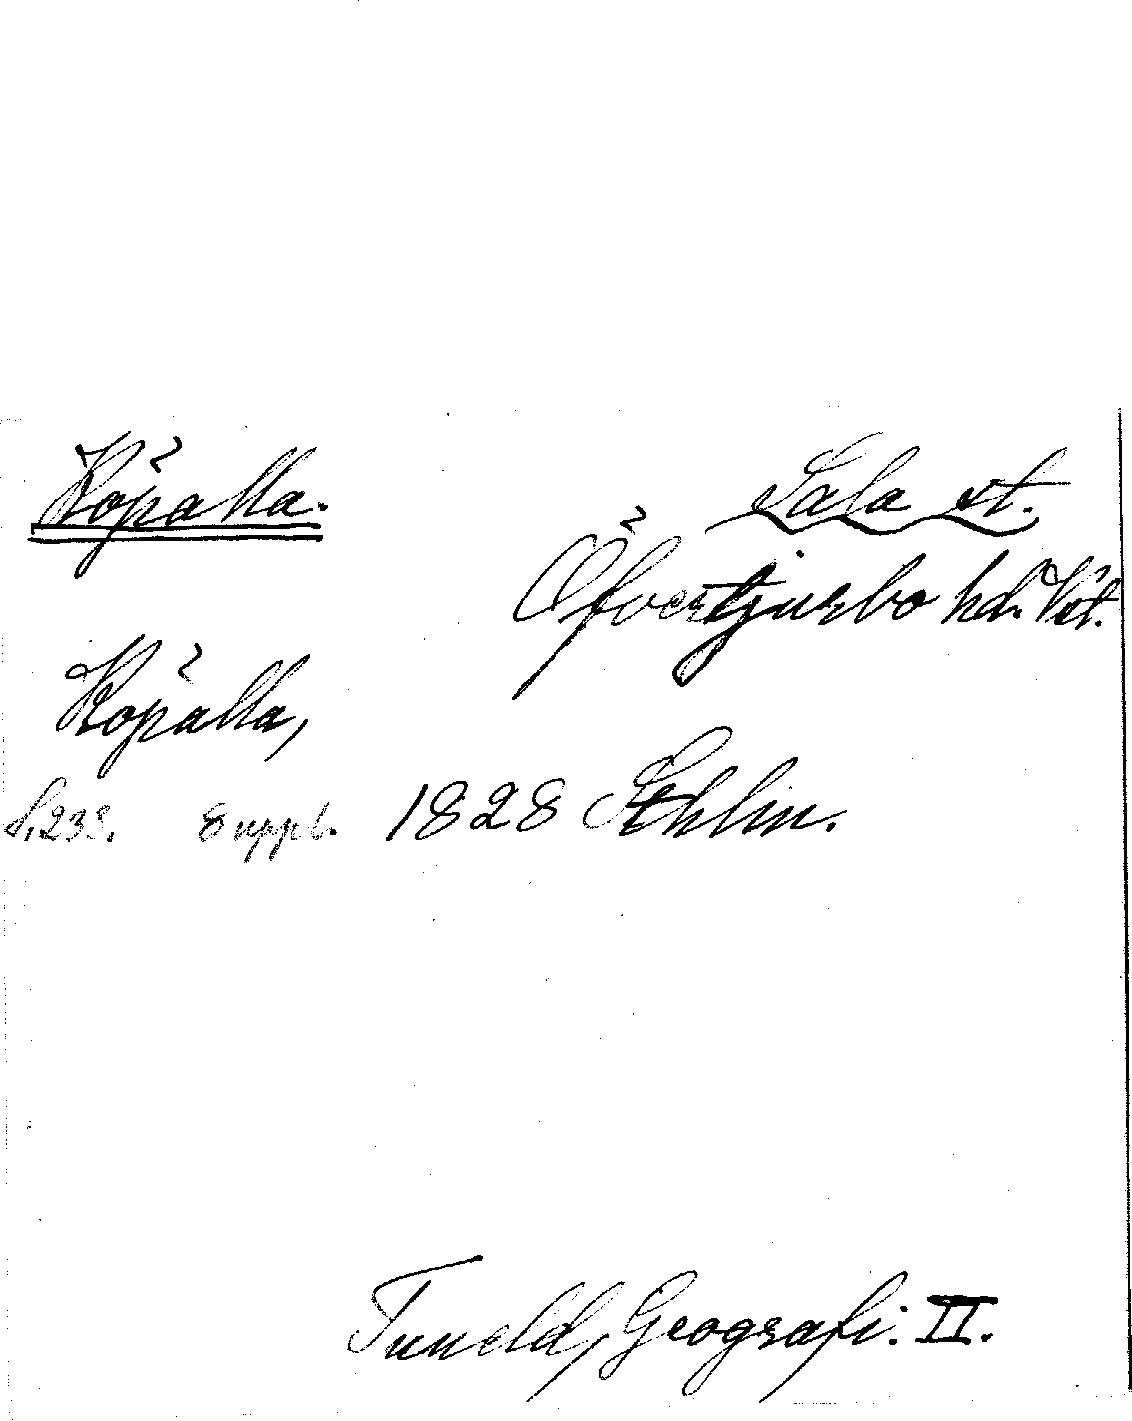 Köpalla.
Sala st.
Öfvertjurbo hd. Vstl.
Köpalla,
S. 238. 8 uppl. 1828 Sthlm.
Tuneld, Geografi. II.